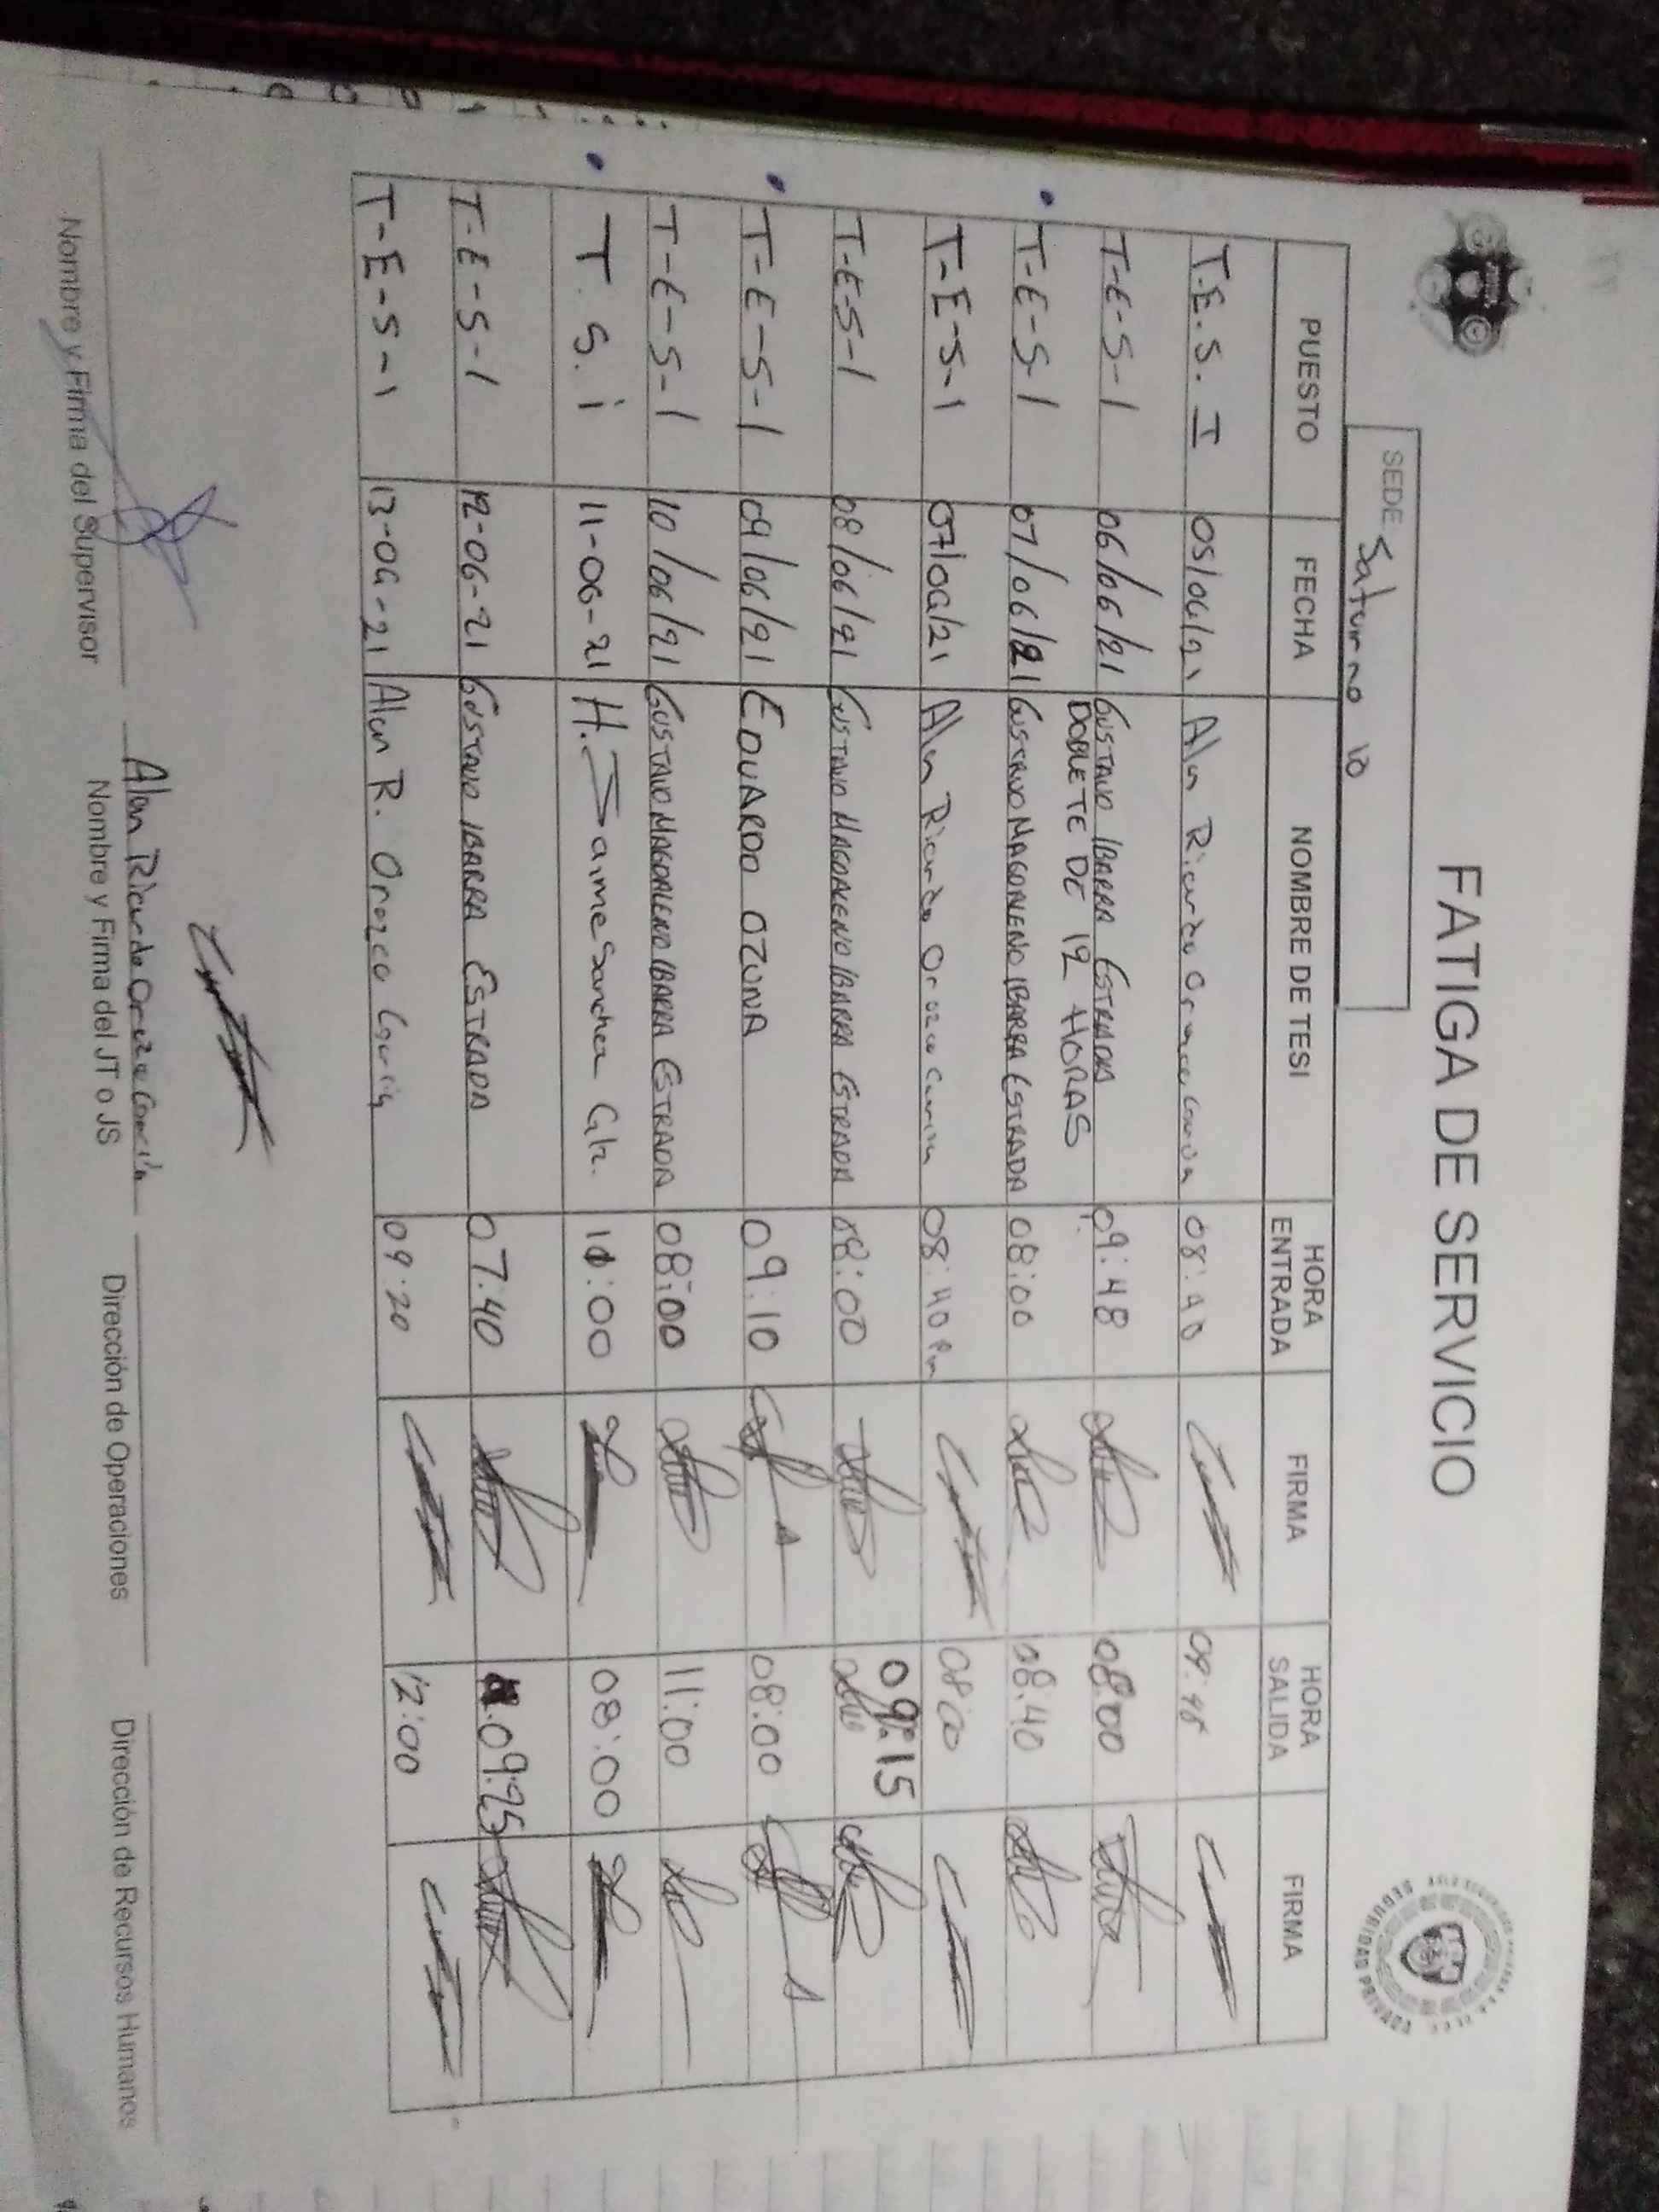 FATIGA DE SERVICIO
SEDE: Saturno 10
PUESTO FECHA NOMBRE DE TESI HORA ENTRADA FIRMA HORA SALIDA FIRMA
T.E.S. I 05/06/21 Alan Ricardo Orozco Garcia 08:40 09:48
T-E-S-1 06/06/21 GUSTAVO IBARRA ESTRADA 09:48 08:00
DOBLETE DE 12 HORAS
T-E-S-1 07/06/21 GUSTAVO MAGDALENO IBARRA ESTRADA 08:00 08:40
T-E-S-1 07/06/21 Alan Ricardo Orozco Garcia 08:40 Pm 08:00
T-E-S-1 08/06/21 GUSTAVO MAGDALENO IBARRA ESTRADA 08:00 09:15
T-E-S-1 09/06/21 EDUARDO OZUNA 09:10 08:00
T-E-S-1 10/06/21 GUSTAVO MAGDALENO IBARRA ESTRADA 08:00 11:00
T.S.i 11-06-21 H. Jaime Sanchez Glz. 11:00 08:00
T-E-S-1 12-06-21 GUSTAVO IBARRA ESTRADA 07:40 09:25
T-E-S-1 13-06-21 Alan R. Orozco Garcia 09:20 12:00
Alan Ricardo Orozco Garcia
Nombre y Firma del Supervisor Nombre y Firma del JT o JS Dirección de Operaciones Dirección de Recursos Humanos